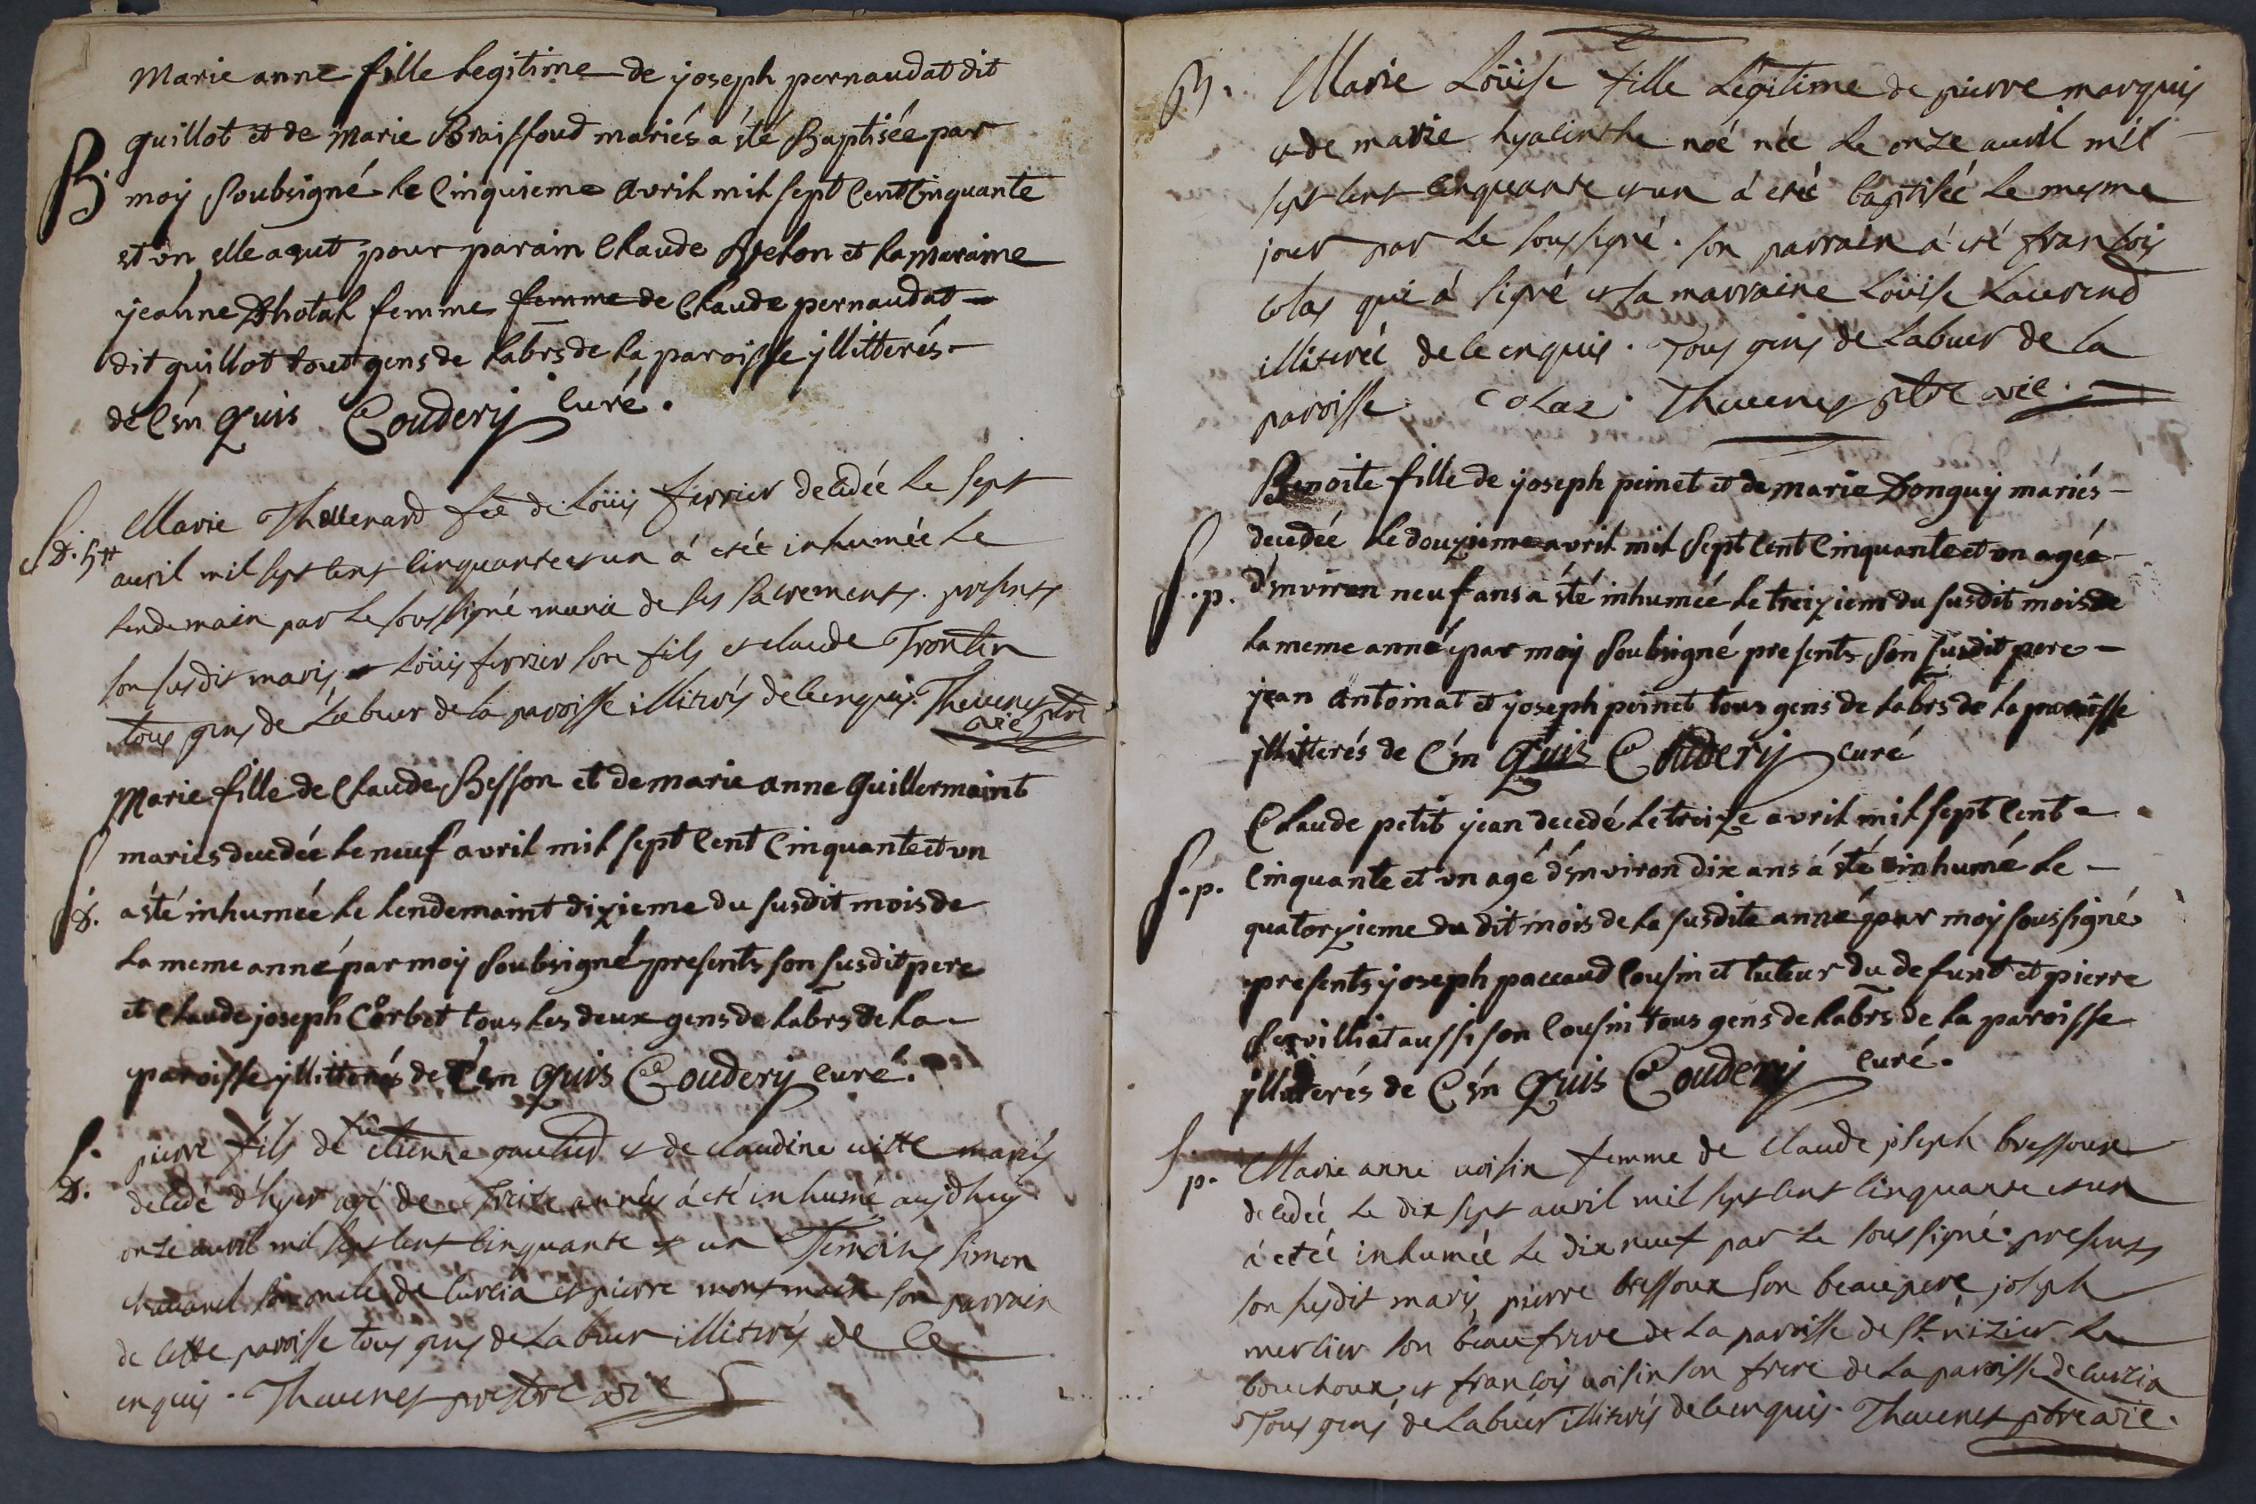 Marie anne fille Legitime de joseph pernaudat dit
B. guillot et de Marie Braissoud mariés a été Baptisée par
moy Soubsigné le Cinquieme Avril mil sept Cent Cinquante
et un elle a eut pour parain Claude Velon et la maraine
jeanne femme femme de Claude pernaudat
dit guillot tout gens de labrs de la paroisse jllitterés
de Cén quis Coudery Curé.
Marie Thevenard fee de Loüis ferrier decedée le sept
S. d. avril mil sept cens cinquante et un á etée inhumée le
lendemain par le soussigné munie de ses sacrements. presents
son susdit maris Loüis ferrier son fils et claude Trontin
tous gens de Labeur de la paroisse illiterés de ce enquis. Thevenet ptre
vic
Marie fille de Claude Besson et de marie anne Guillermaint
mariés decedée le neuf avril mil sept Cent Cinquante et un
S. d. a été inhumée le lendemaint dixieme du susdit mois de
la meme anné par moy Soubsigné presents son susdit pere
et Claude joseph Corbet tous les deux gens de labrs de la
paroisse jllitterés de Cén quis Coudery curé.
S. pierre fils de fû etienne gautier et de claudine vitte mariés
d. decedé d'hyer agé de treize années á eté inhumé aujdhuy
onze avril mil sept cens cinquante et un Temoins simon
chavanel son oncle de cursia et pierre montmain son parrain
de cette paroisse tous gens de Labeur illiterés de ce
enquis. Thevenet prestre vic
B. Marie Loüise fille Légitime de pierre marquis
et de marie hyacinthe noé née le onze avril mil
sept cens cinquante et un á etée baptisée le mesme
jour par le soussigné. son parrain á eté francois
colas qui á signé et sa marraine Loüise Laurend
illiterée de ce enquis. Tous gens de Labeur de la
paroisse. Colas. Thevenet ptre vic.
Benoite fille de joseph peinet et de marie Donguy mariés
decedée le douzieme avril mil sept Cent Cinquante et un agée
S. p. d'environ neuf ans a été inhumée le treizieme du susdit mois de
la meme anné par moy Soubsigné presents son susdit pere
jean Antoinat et joseph peinet tous gens de labrs de la paroisse
jllitterés de Cén quis Coudery curé
Claude petit jean decedé le treize avril mil sept Cent
S. p. Cinquante et un agé d'environ dix ans a été inhumé le
quatorzieme du dit mois de la susdite anné par moy soussigné
presents joseph paccaud Cousin et tuteur du defunt et pierre
Servilliat aussi son Cousin tous gens de labrs de la paroisse
jllitterés de Cén quis Coudery Curé.
S. p. Marie anne voisin femme de Claude joseph bressoux
decedée le dix sept avril mil sept cens cinquante et un
á etée inhumée le dix neuf par le soussigné. presents
son susdit maris pierre bressoux son beau pere joseph
mercier son beau frere de la paroisse de St nizier le
bouchoux et francois voisin son frere de la paroisse de cursia
Tous gens de Labeur illiterés de ce enquis. Thevenet ptre vic.